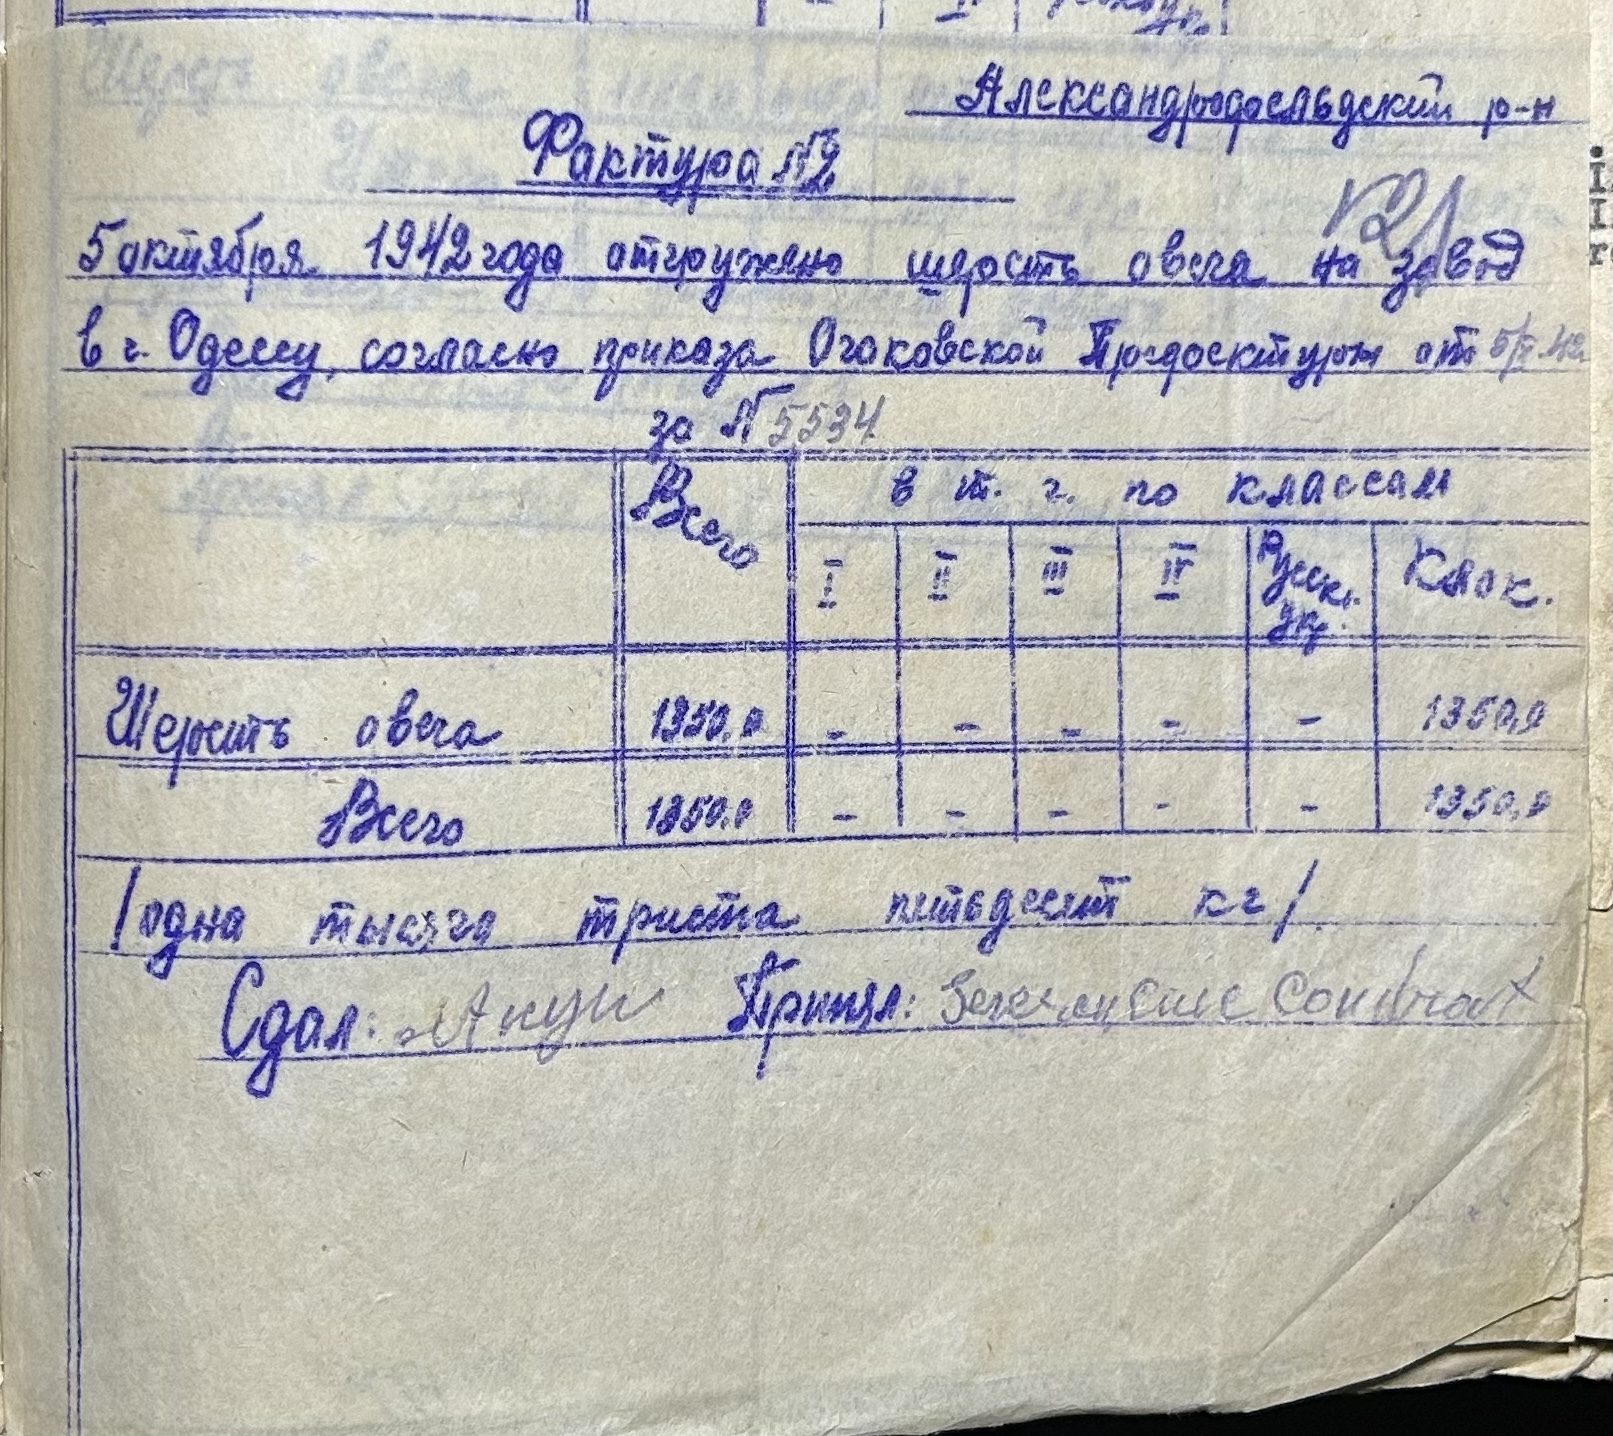 Александродосльдский р-н
Фактура №2
5 октября 1942 года отгружено шерсть овеча на завод
в г. Одессу, согласно приказа Очаковской Предоектуры от
за № 5534
Всего в т. ч. по классам
I II III IV Русск. укр. Клок.
Шерсть овеча 1350,0 - - - - - 1350,0
Всего 1350,0 - - - - - 1350,0
/одна тысяча триста пятьдесят кг/.
Сдал: Принял: Condrat